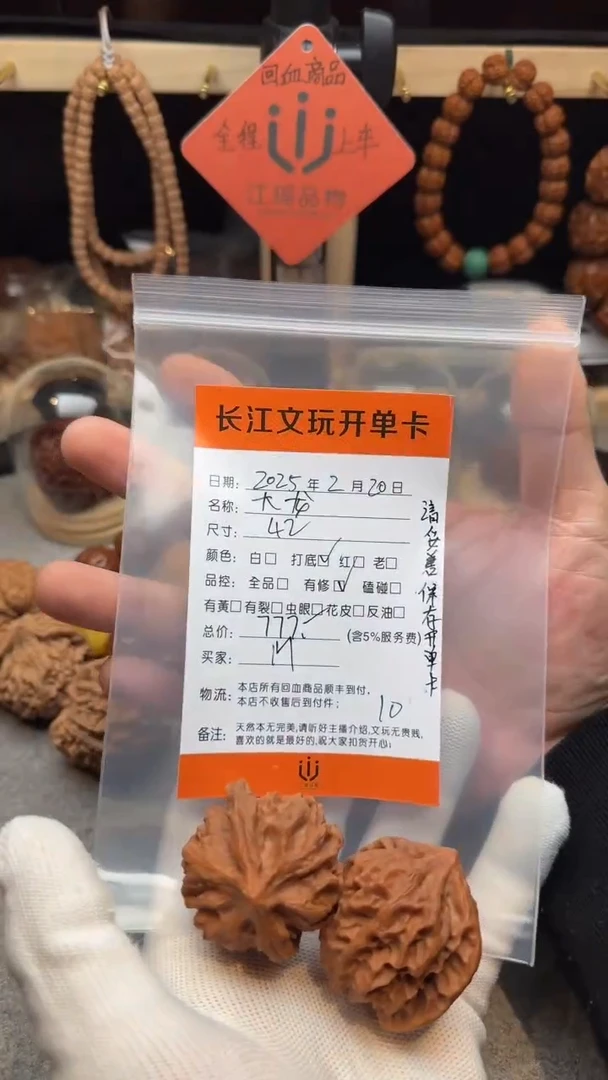 回血商品
全程 上车
江瑶品物
长江文玩开单卡
日期: 2025年2月20日
名称: 大龙
尺寸: 42
颜色: 白□ 打底☑ 红□ 老□
品控: 全品□ 有修☑ 磕碰□
有黄□有裂□虫眼□花皮□反油□
总价: 777.- (含5%服务费)
买家:
物流: 本店所有回血商品顺丰到付,
本店不收售后到付件;
10
备注: 天然本无完美,请听好主播介绍,文玩无贵贱,
喜欢的就是最好的,祝大家扣货开心!
请妥善保存开单卡